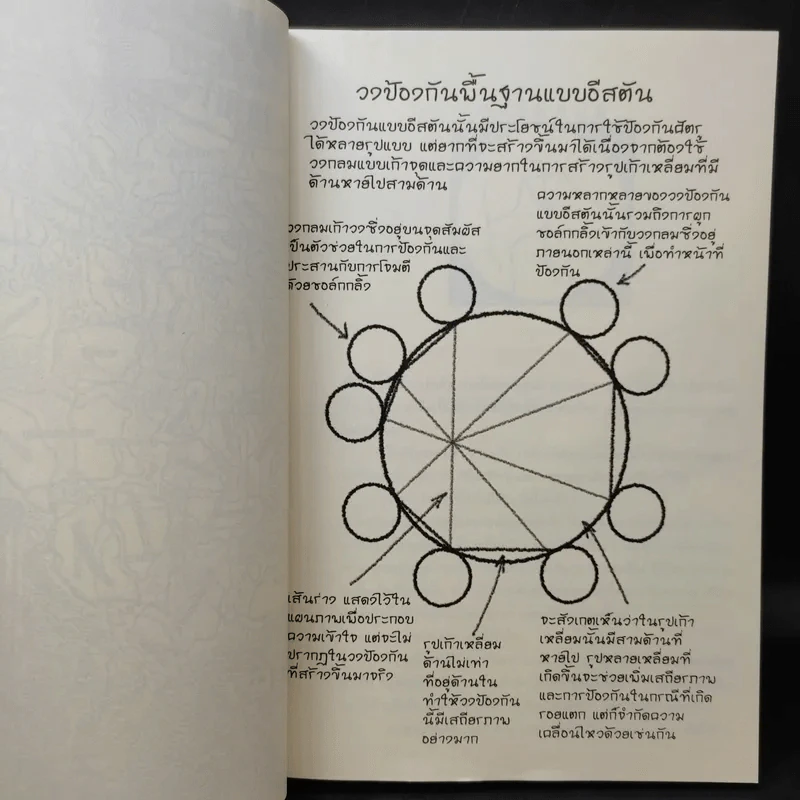 วงป้องกันพื้นฐานแบบอีสตัน
วงป้องกันแบบอีสตันนั้นมีประโยชน์ในการใช้ป้องกันศัตรู
ได้หลายรูปแบบ แต่ยากที่จะสร้างขึ้นมาได้เนื่องจากต้องใช้
วงกลมแบบเก้าจุดและความยากในการสร้างรูปเก้าเหลี่ยมที่มี
ด้านหายไปสามด้าน
ความหลากหลายของวงป้องกัน
แบบอีสตันนั้นรวมถึงการผูก
ชอล์กกลิ้งเข้ากับวงกลมซึ่งอยู่
ภายนอกเหล่านี้ เพื่อทำหน้าที่
ป้องกัน
วงกลมเก้าวงซึ่งอยู่บนจุดสัมผัส
เป็นตัวช่วยในการป้องกันและ
ประสานกับการโจมตี
ด้วยชอล์กกลิ้ง
เส้นร่าง แสดงไว้ใน
แผนภาพเพื่อประกอบ
ความเข้าใจ แต่จะไม่
ปรากฏในวงป้องกัน
ที่สร้างขึ้นมาจริง
รูปเก้าเหลี่ยม
ด้านไม่เท่า
ที่อยู่ด้านใน
ทำให้วงป้องกัน
นี้มีเสถียรภาพ
อย่างมาก
จะสังเกตเห็นว่าในรูปเก้า
เหลี่ยมนั้นมีสามด้านที่
หายไป รูปหลายเหลี่ยมที่
เกิดขึ้นจะช่วยเพิ่มเสถียรภาพ
และการป้องกันในกรณีที่เกิด
รอยแตก แต่ก็จำกัดความ
เคลื่อนไหวด้วยเช่นกัน